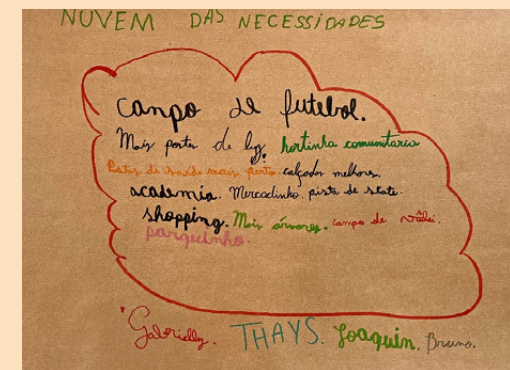 NUVEM DAS NECESSIDADES
Canpo de futebol.
Mais postes de luz. hortinha comunitaria
Postos de saúde mais perto. calçadas melhores.
academia. Mercadinho. pista de skate.
shopping. Mais árvores. campo de vôlei.
parquinho.
Gabrielly. THAYS. Joaquin. Bruno.